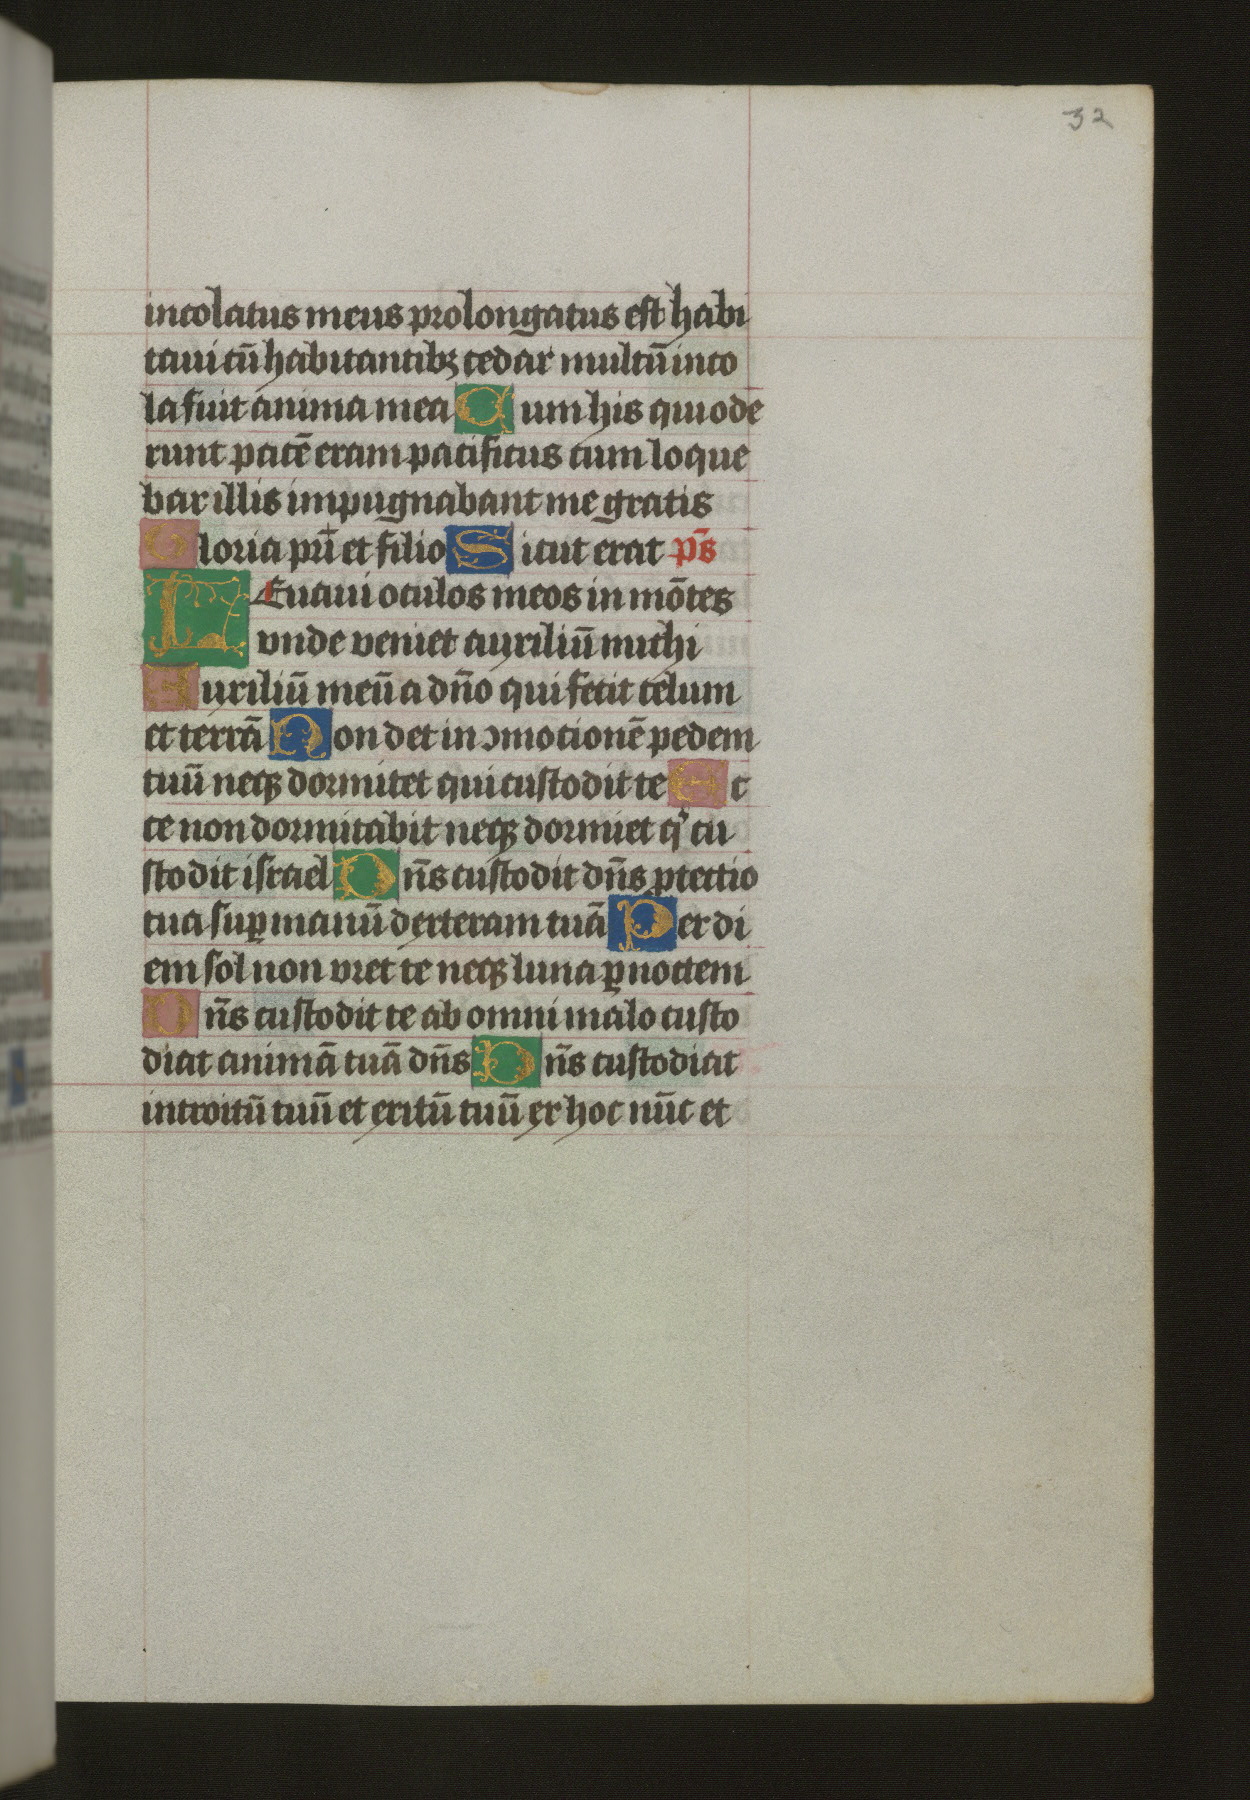 32
incolatus meus prolongatus est habi
taui cū habitantibꝫ cedar multū inco
la fuit anima mea Cum his qui ode
runt pacē eram pacificus cum loque
bar illis impugnabant me gratis
Gloria pr̄i et filio Sicut erat ps̄
LEuaui oculos meos in mōtes
vnde veniet auxiliū michi
Auxiliū meū a dn̄o qui fecit celum
et terrā Non det in ↄmotionē pedem
tuū neqꝫ dormitet qui custodit te Ec
ce non dormitabit neqꝫ dormiet qͥ cu
stodit israel Dn̄s custodit dn̄s ꝓtectio
tua suꝑ manū dexteram tuā Per di
em sol non vret te neqꝫ luna ꝑ noctem
Dn̄s custodit te ab omni malo custo
diat animā tuā dn̄s Dn̄s custodiat
introitū tuū et exitū tuū ex hoc nūc et